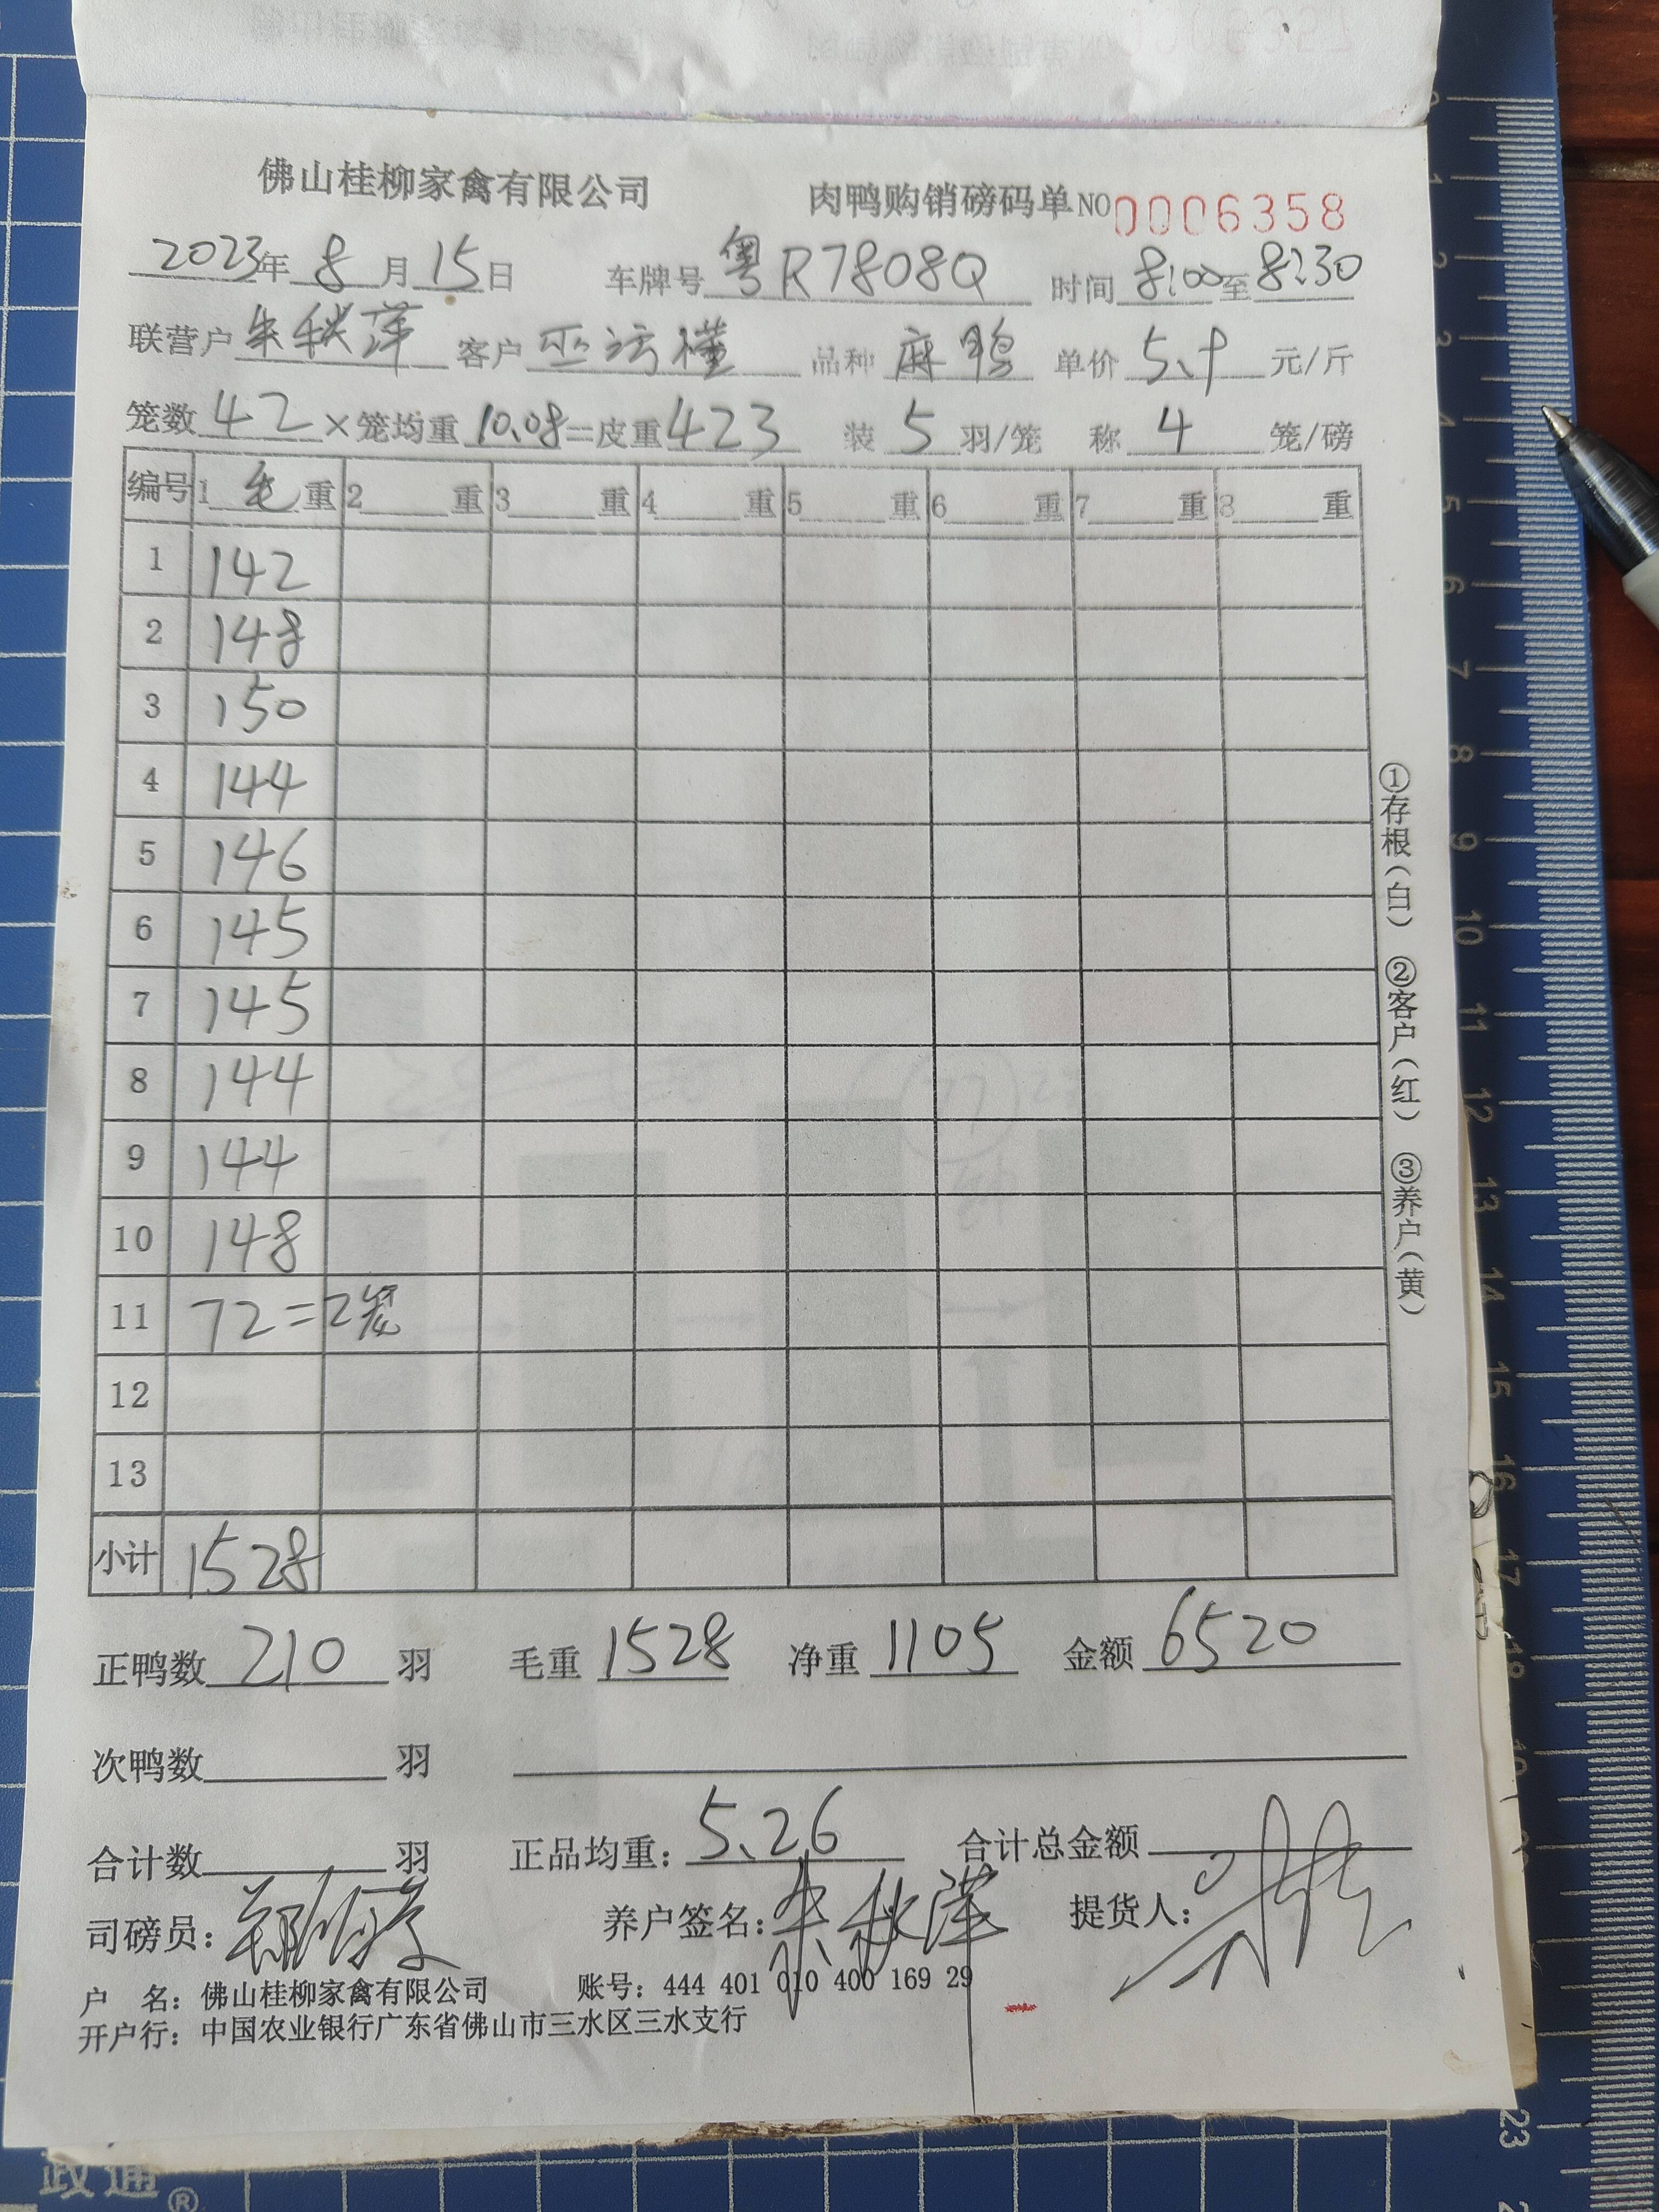 佛山桂柳家禽有限公司 肉鸭购销磅码单 NO 0006358
2023年 8 月 15 日 车牌号 粤R7808Q 时间 8:00 至 8:30
联营户 朱秋萍 客户 巫 品种 麻鸭 单价 5.9 元/斤
笼数 42 × 笼均重 10.08 = 皮重 423 装 5 羽/笼 称 4 笼/磅
编号 1 毛 重 2 重 3 重 4 重 5 重 6 重 7 重 8 重
1 142
2 148
3 150
4 144
5 146
6 145
7 145
8 144
9 144
10 148
11 72=2笼
12
13
小计 1528
正鸭数 210 羽 毛重 1528 净重 1105 金额 6520
次鸭数 羽
合计数 羽 正品均重: 5.26 合计总金额
司磅员: 养户签名: 朱秋萍 提货人:
户 名: 佛山桂柳家禽有限公司 账号: 444 401 010 400 169 29
开户行: 中国农业银行广东省佛山市三水区三水支行
①存根(白) ②客户(红) ③养户(黄)
0 1 2 3 4 5 6 7 8 9 10 11 12 13 14 15 16 17 18 19 23
政通®